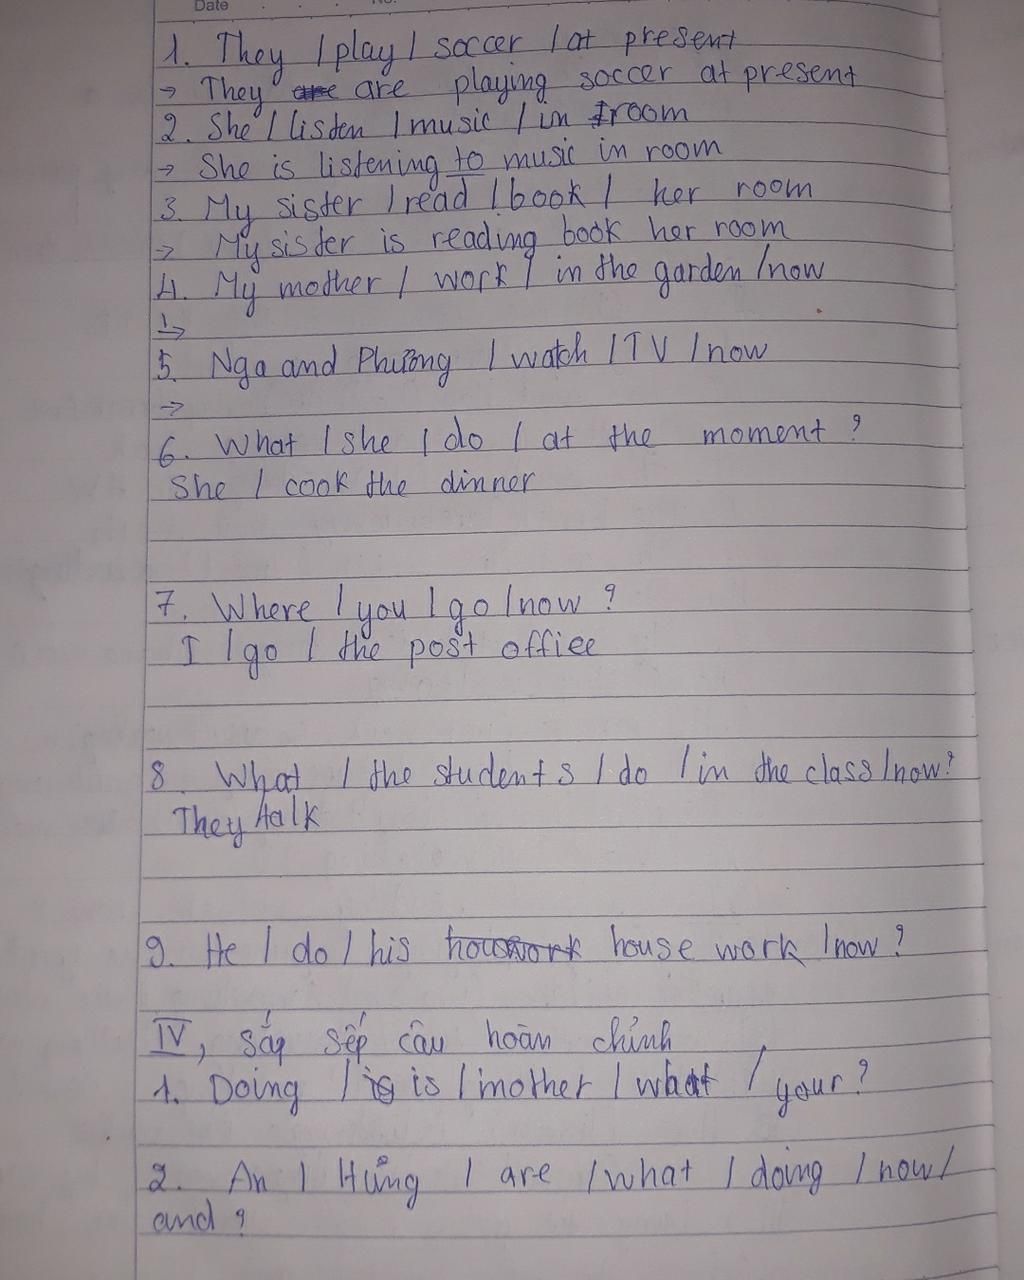 Date No.
1. They / play / soccer / at present
→ They are are playing soccer at present
2. She / listen / music / in room
→ She is listening to music in room
3. My sister / read / book / her room
→ My sister is reading book her room
4. My mother / work / in the garden / now
→
5. Nga and Phương / watch / TV / now
→
6. What / she / do / at the moment ?
She / cook the dinner
7. Where / you / go / now ?
I / go / the post office
8. What / the students / do / in the class / now?
They talk
9. He / do / his houswork house work / now ?
IV, Sắp sếp câu hoàn chỉnh
1. Doing / is is / mother / what / your ?
2. An / Hưng / are / what / doing / now /
and ?